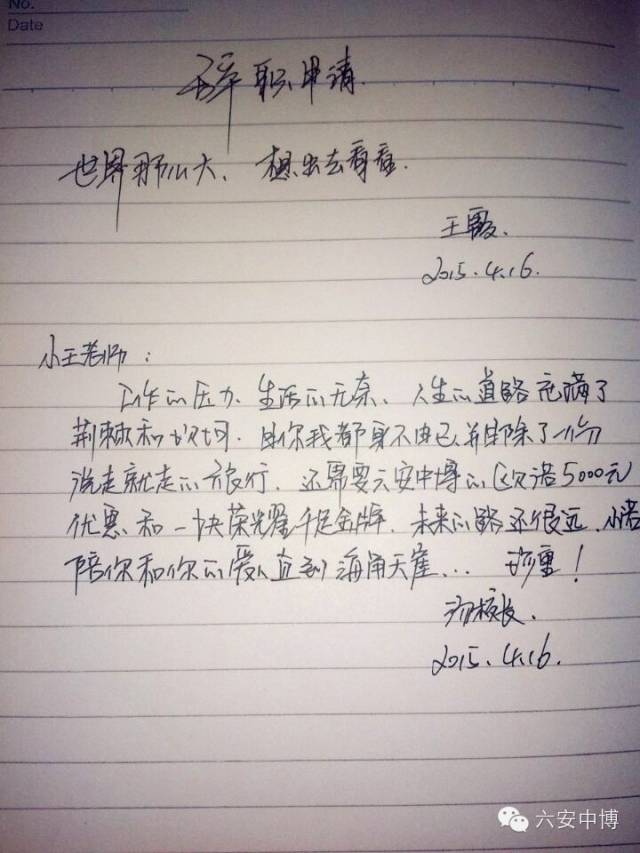 No.
Date
辞职申请
世界那么大、想出去看看.
王霞.
2015.4.16.
小王老师：
工作的压力、生活的无奈、人生的道路充满了
荆棘和坎坷.由你我都身不由己.并除了一份
说走就走的旅行.还需要六安中博的区议诺5000元
优惠和一块荣耀千足金牌.未来的路还很远.小诺
陪你和你的爱人直到海角天崖...珍重！
校长.
2015.4.16.
六安中博